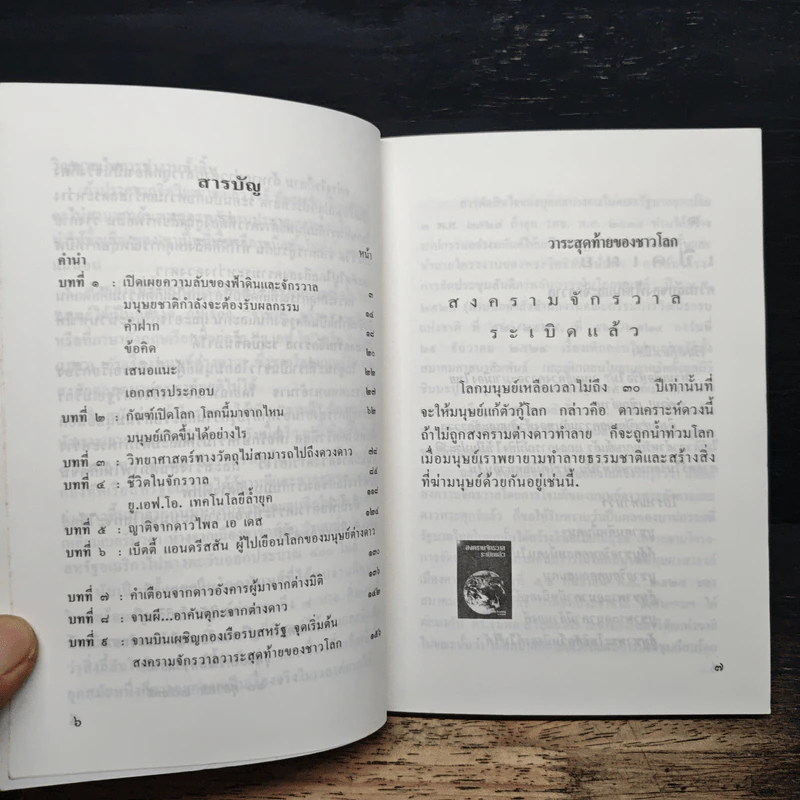 สารบัญ
คำนำ หน้า
บทที่ ๑ : เปิดเผยความลับของฟ้าดินและจักรวาล ๓
มนุษยชาติกำลังจะต้องรับผลกรรม ๑๔
คำฝาก ๑๘
ข้อคิด ๒๐
เสนอแนะ ๒๒
เอกสารประกอบ ๒๗
บทที่ ๒ : กัณฑ์เปิดโลก โลกนี้มาจากไหน ๖๒
มนุษย์เกิดขึ้นได้อย่างไร
บทที่ ๓ : วิทยาศาสตร์ทางวัตถุไม่สามารถไปถึงดวงดาว ๗๘
บทที่ ๔ : ชีวิตในจักรวาล ๘๔
ยู.เอฟ.โอ. เทคโนโลยีล้ำยุค ๑๑๘
บทที่ ๕ : ญาติจากดาวไพล เอ เดส ๑๒๔
บทที่ ๖ : เบ็ตตี้ แอนดรีสสัน ผู้ไปเยือนโลกของมนุษย์ต่างดาว
๑๓๐
บทที่ ๗ : คำเตือนจากดาวอังคารผู้มาจากต่างมิติ ๑๓๖
บทที่ ๘ : จานผี...อาคันตุกะจากต่างดาว ๑๔๒
บทที่ ๙ : จานบินเผชิญกองเรือรบสหรัฐ จุดเริ่มต้น
สงครามจักรวาลวาระสุดท้ายของชาวโลก ๑๕๖
๖
วาระสุดท้ายของชาวโลก
สงครามจักรวาล
ระเบิดแล้ว
โลกมนุษย์เหลือเวลาไม่ถึง ๓๐ ปีเท่านั้นที่
จะให้มนุษย์แก้ตัวกู้โลก กล่าวคือ ดาวเคราะห์ดวงนี้
ถ้าไม่ถูกสงครามต่างดาวทำลาย ก็จะถูกน้ำท่วมโลก
เมื่อมนุษย์เราพยายามทำลายธรรมชาติและสร้างสิ่ง
ที่ฆ่ามนุษย์ด้วยกันอยู่เช่นนี้.
สงครามจักรวาล
ระเบิดแล้ว
๗